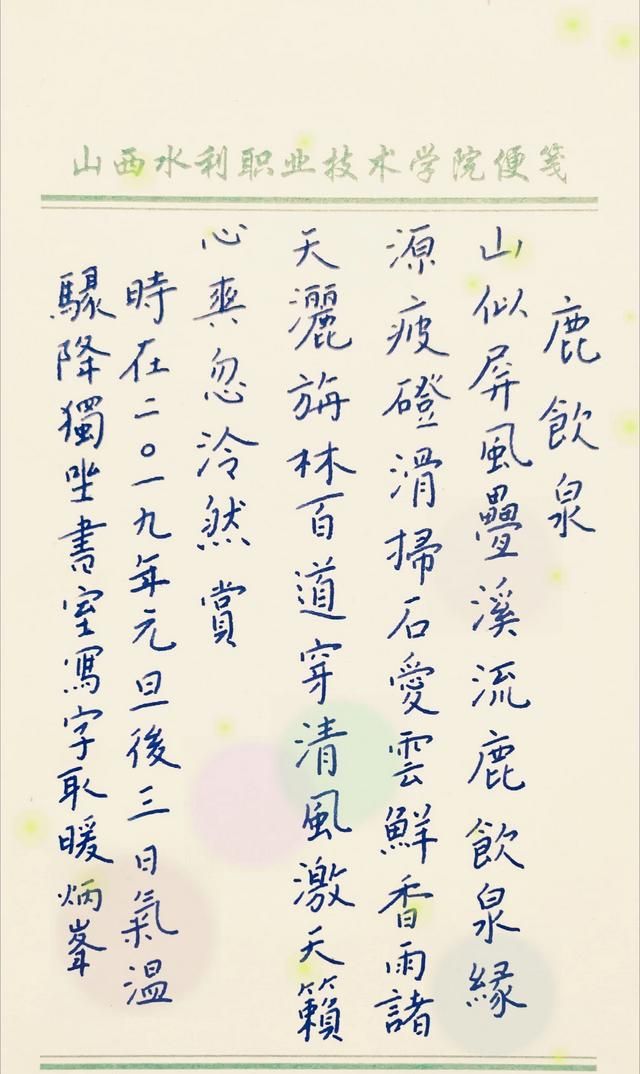 山西水利职业技术学院便笺
鹿飲泉
山似屏風疊溪流鹿飲泉緣
源疲磴滑掃石愛雲鮮香雨諸
天灑旃林百道穿清風激天籟
心爽忽泠然賞
時在二〇一九年元旦後三日氣溫
驟降獨坐書室寫字取暖炳峯